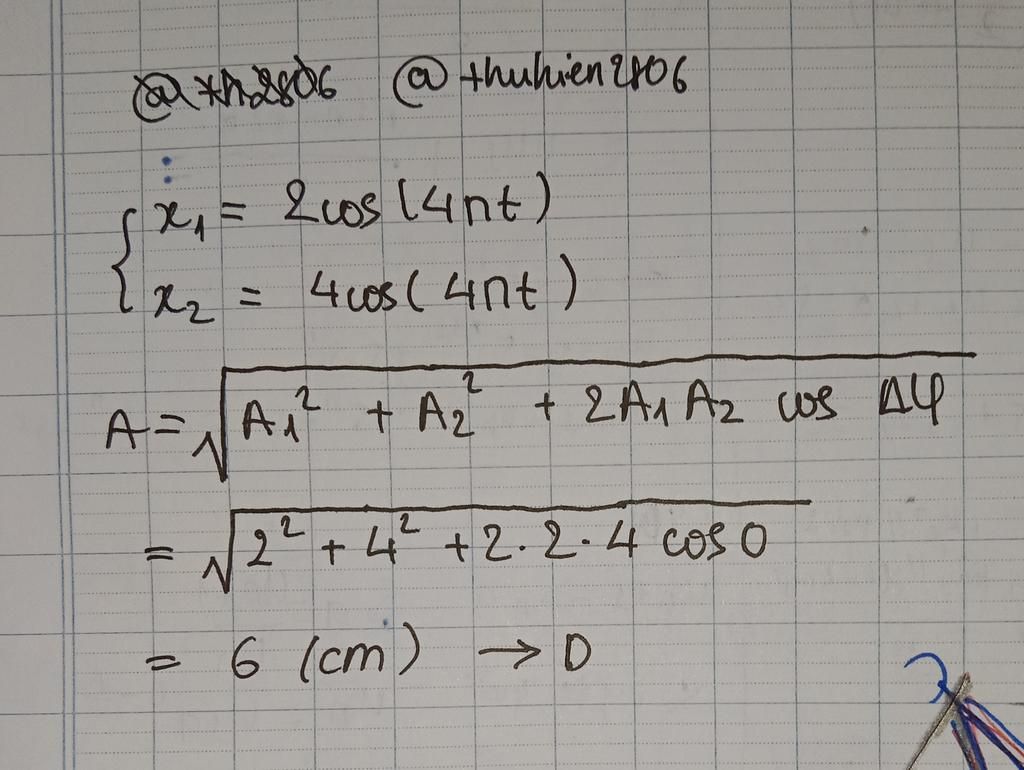 @th2806 @thuhien2806
x₁ = 2cos(4πt)
x₂ = 4cos(4πt)
A = √(A₁² + A₂² + 2A₁A₂ cos Δφ)
= √(2² + 4² + 2·2·4 cos0)
= 6 (cm) → D